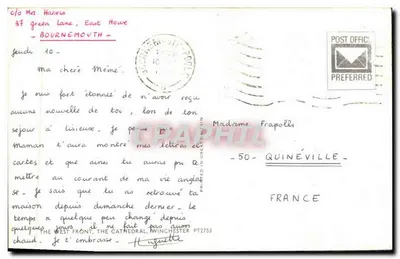 c/o Mrs Harris
37 green Lane, East Howe
- BOURNEMOUTH -
Jeudi 10 -
Ma chère Mémé.
Je suis fort étonnée de n'avoir reçu
aucune nouvelle de toi, lors de ton
séjour à Lisieux. Je pense
Maman t'aura montré mes lettres et
cartes et que ainsi tu auras pu te
mettre au courant de ma vie anglai
se - Je sais que tu as retrouvé ta
maison depuis dimanche dernier - le
temps a quelque peu changé depuis
quelques jours il ne fait pas aussi
chaud. Je t'embrasse - Huguette
POST OFFICE
PREFERRED
Madame Frapolli
- 50 - QUINÉVILLE -
FRANCE
THE WEST FRONT, THE CATHEDRAL, WINCHESTER PT1753